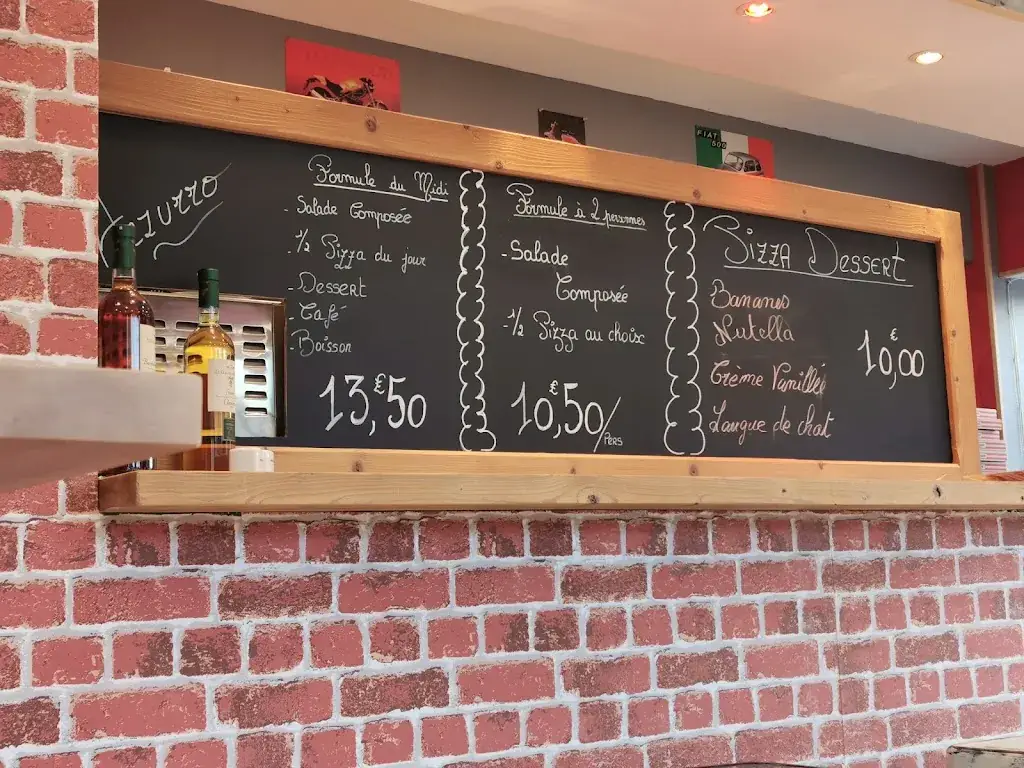 Formule du Midi
- Salade Composée
- 1/2 Pizza du jour
- Dessert
- Café
- Boisson
13,€50
Formule à 2 personnes
- Salade
Composée
- 1/2 Pizza au choix
10,€50/Pers
Pizza Dessert
Banane
Nutella
Crème Vanille
Langue de chat
10,€00
FIAT
500